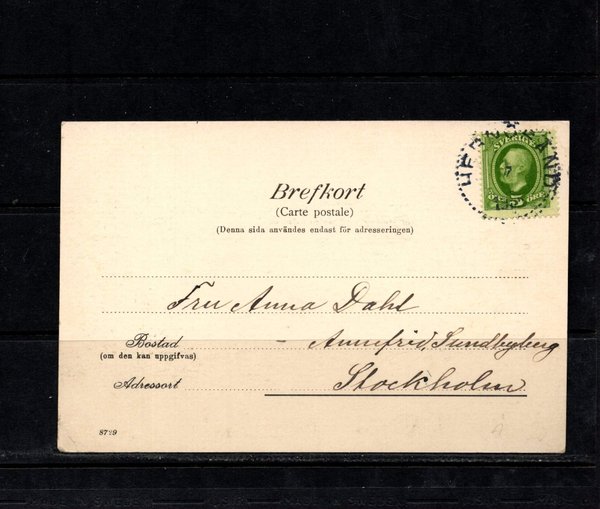 SVERIGE
5 ÖRE
Brefkort
(Carte postale)
(Denna sida användes endast för adresseringen)
Fru Anna Dahl
Bostad - Annefrid, Sundbyberg
(om den kan uppgifvas)
Adressort Stockholm
8729